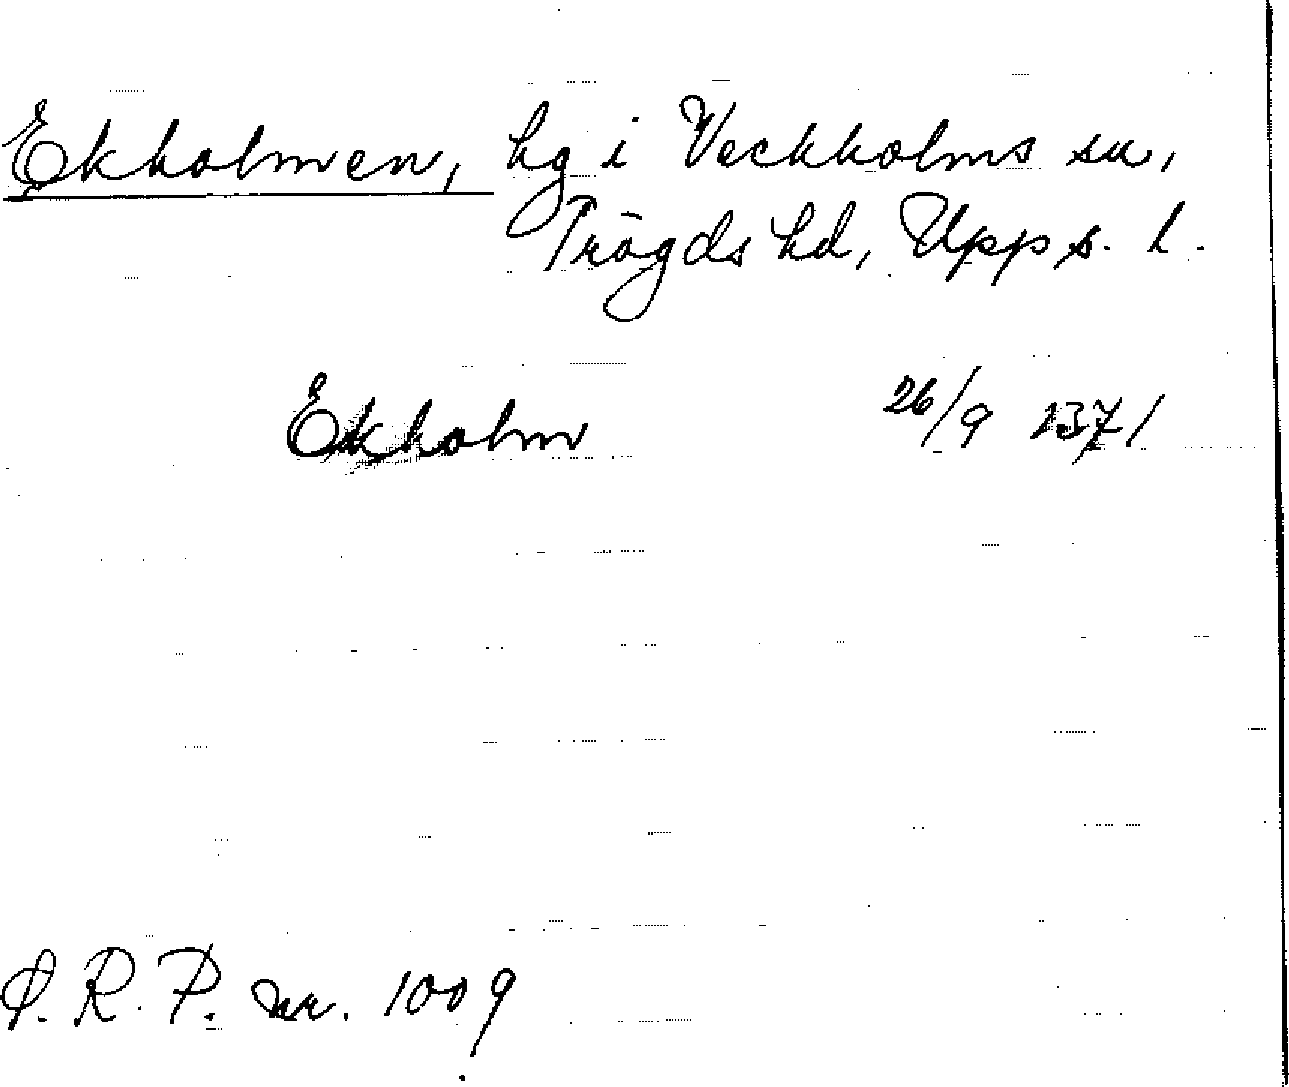 Ekholmen, hg i Veckholms sn,
Trögds hd, Upps. l.
Ekholm 26/9 1371
S.R.P. nr. 1009